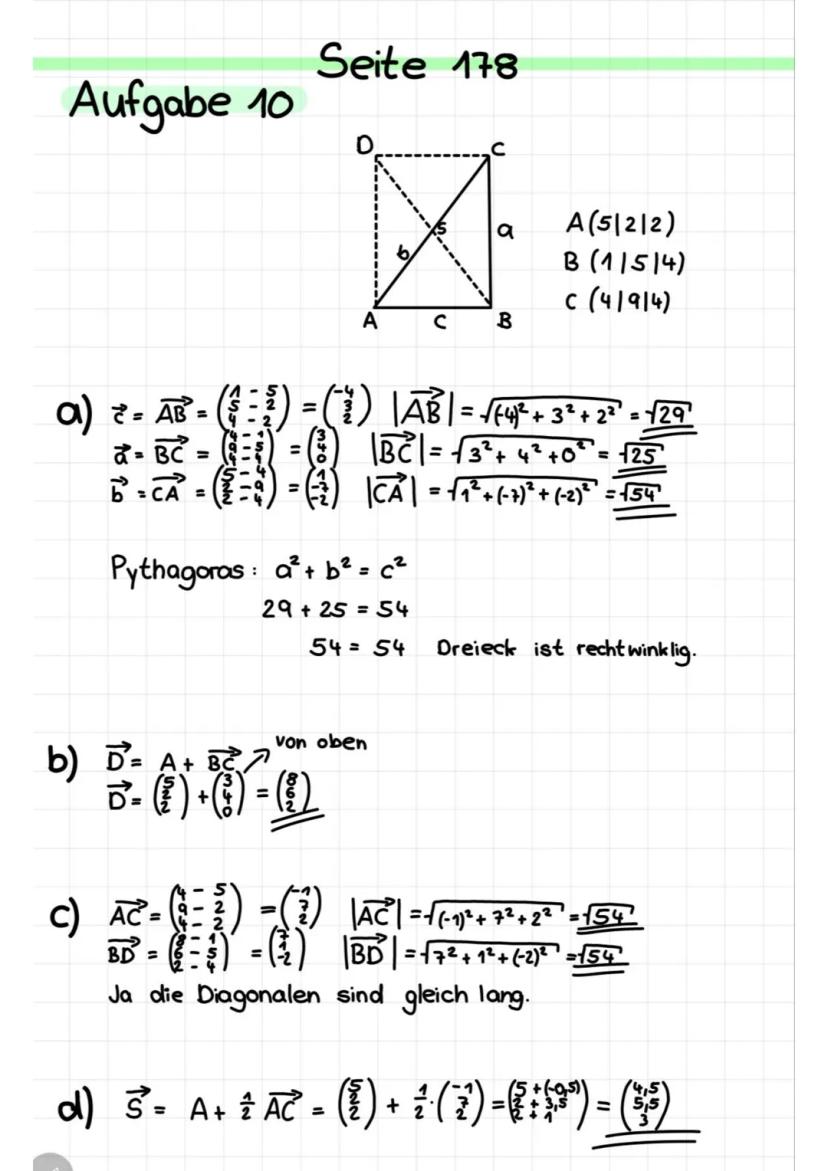 Seite 178
Aufgabe 10
D C
b S a
A C B
A(5|2|2)
B (1|5|4)
C (4|9|4)
a) c⃗ = AB⃗ = (1 - 5 / 5 - 2 / 4 - 2) = (-4 / 3 / 2) |AB⃗| = √((-4)² + 3² + 2²) = √29
a⃗ = BC⃗ = (4 - 1 / 9 - 5 / 4 - 4) = (3 / 4 / 0) |BC⃗| = √(3² + 4² + 0²) = √25
b⃗ = CA⃗ = (5 - 4 / 2 - 9 / 2 - 4) = (1 / -7 / -2) |CA⃗| = √(1² + (-7)² + (-2)²) = √54
Pythagoras: a² + b² = c²
29 + 25 = 54
54 = 54 Dreieck ist rechtwinklig.
von oben
b) D⃗ = A + BC⃗ ↗
D⃗ = (5 / 2 / 2) + (3 / 4 / 0) = (8 / 6 / 2)
c) AC⃗ = (4 - 5 / 9 - 2 / 4 - 2) = (-1 / 7 / 2) |AC⃗| = √((-1)² + 7² + 2²) = √54
BD⃗ = (8 - 1 / 6 - 5 / 2 - 4) = (7 / 1 / -2) |BD⃗| = √(7² + 1² + (-2)²) = √54
Ja die Diagonalen sind gleich lang.
d) S⃗ = A + ½ AC⃗ = (5 / 2 / 2) + ½ · (-1 / 7 / 2) = (5 + (-0,5) / 2 + 3,5 / 2 + 1) = (4,5 / 5,5 / 3)